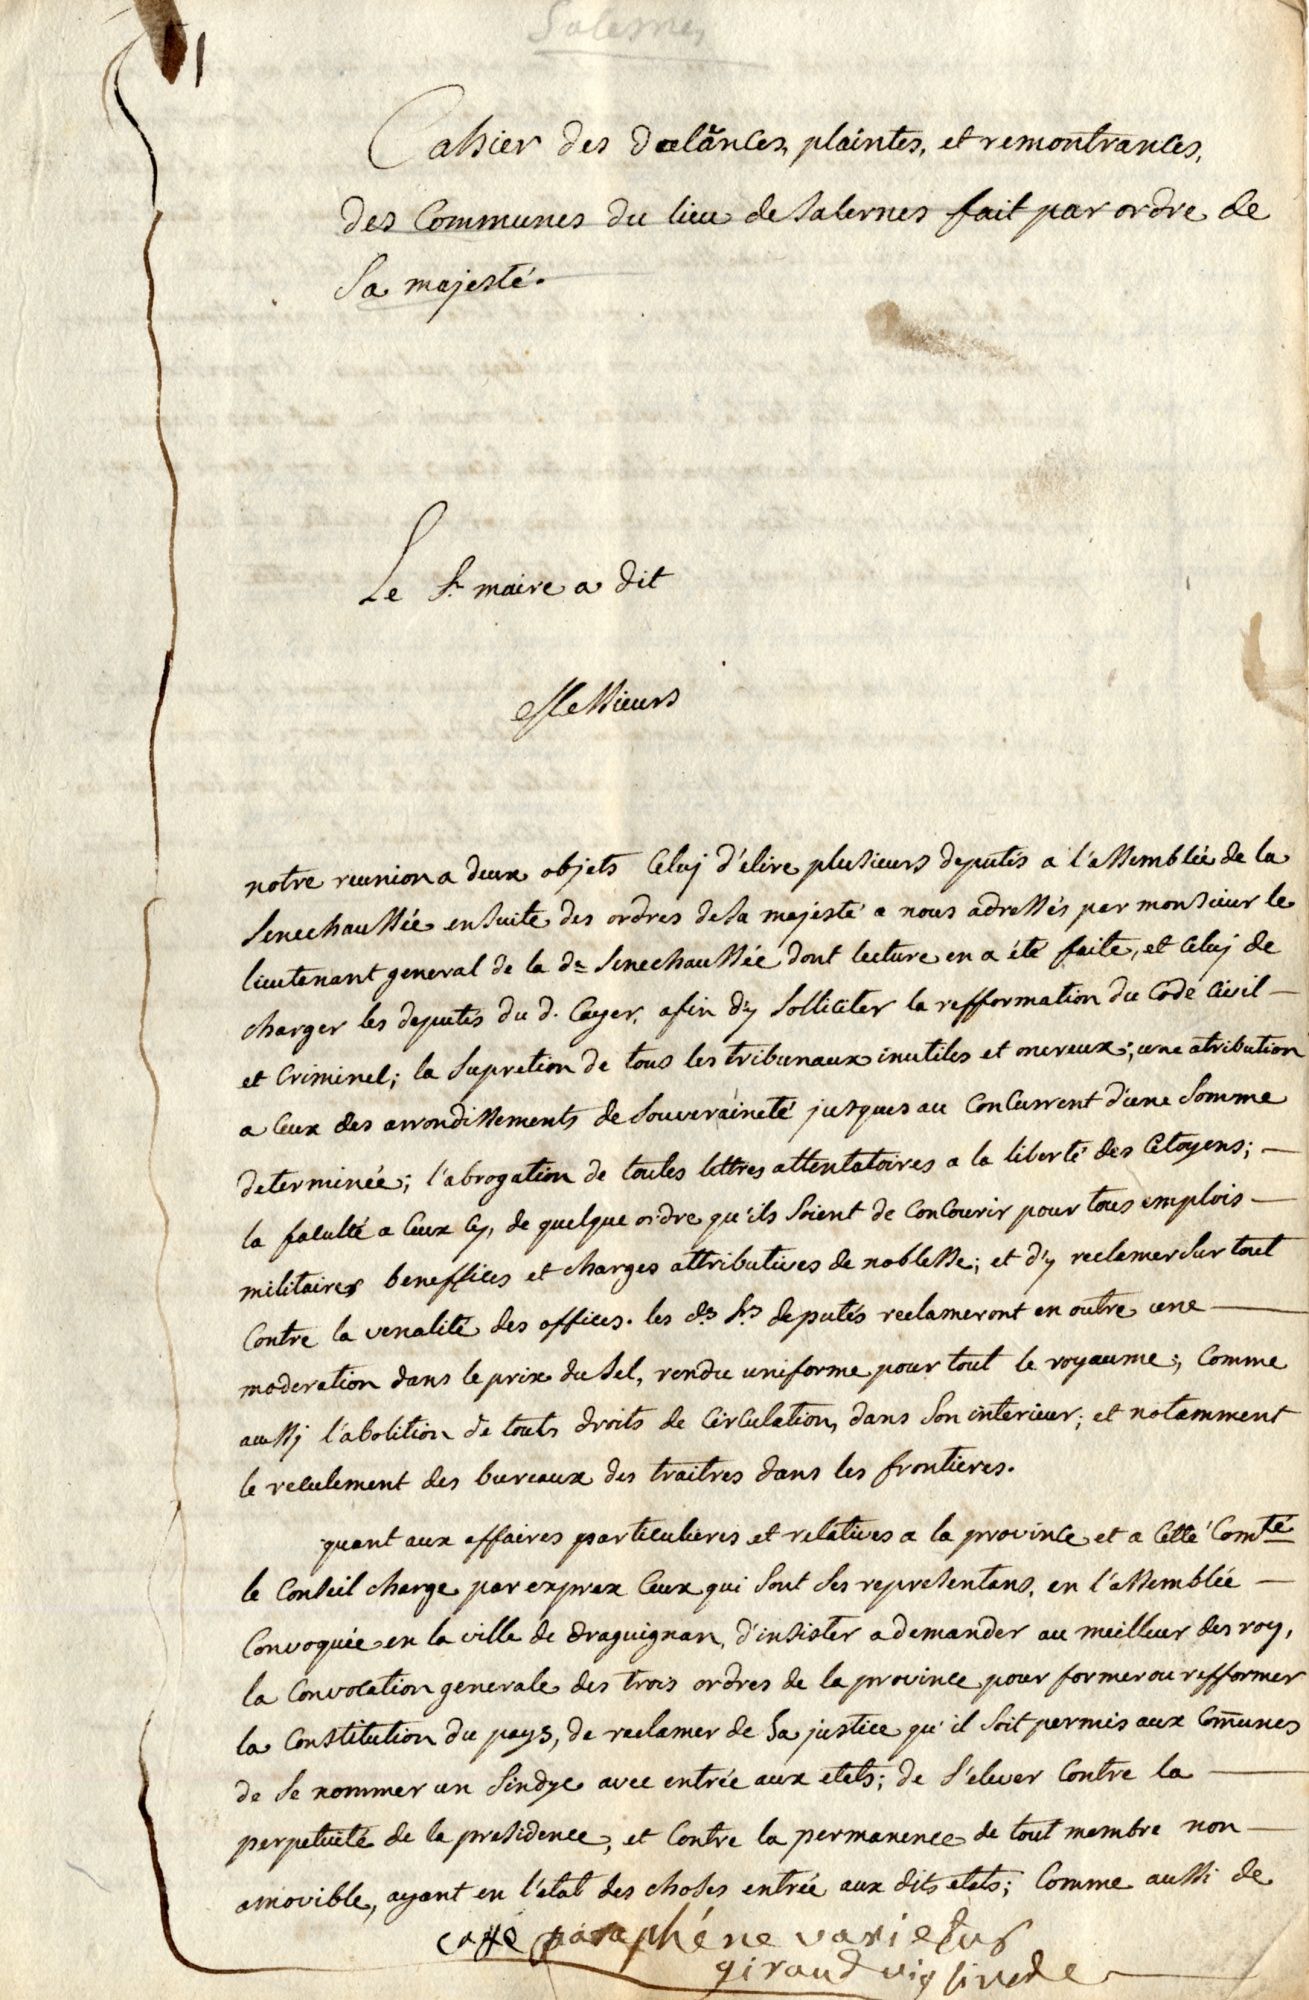 Salerne,
1
Cahier des dolãnces, plaintes, et remontrances,
des Communes du lieu de Salernes fait par ordre de
Sa majesté.
Le Sr. maire a dit
Messieurs
notre reunion a deux objets Celuj d'élire plusieurs deputés a l'assemblée de la
Senechaussée ensuite des ordres de Sa majesté a nous adressés par monsieur le
lieutenant general de la de. Senechaussée dont lecture en a été faite, et Celuj de
charger les deputés du d. Cayer, afin d'y solliciter la refformation du Code Civil —
et Criminel; la supretion de tous les tribunaux inutiles et onereux; une atribution
a Ceux des arrondissements de Souveraineté jusques au Concurrent d'une Somme
determinée; l'abrogation de toutes lettres attentatoires a la liberté des Citoyens; —
la faculté a Ceux Cy, de quelque ordre qu'ils soient de Concourir pour tous emplois —
militaires beneffices et charges attributives de noblesse; et d'y reclamer Sur tout
Contre la venalité des offices. les ds. Srs. deputés reclameront en outre une —
moderation dans le prix du Sel, rendu uniforme pour tout le royaume; Comme
aussj l'abolition de touts droits de Circulation, dans Son interieur; et notamment
le reculement des bureaux des traitres dans les frontieres.
quant aux affaires particulieres et relatives a la province et a Cette Comté
le Conseil charge par exprex Ceux qui sont ses representans, en l'assemblée —
Convoquée en la ville de draguignan, d'insister a demander au meilleur des roy,
la Convocation generale des trois ordres de la province pour former ou refformer
la Constitution du pays, de reclamer de Sa justice qu'il soit permis aux Com̃unes
de se nommer un Sindyc avec entrée aux etats; de s'elever Contre la —
perpetuité de la presidence, et Contre la permanence de tout membre non —
amovible, ayant en l'etat des choses entrée aux dits etats; Comme aussi de
paraphé ne varietur
giraud